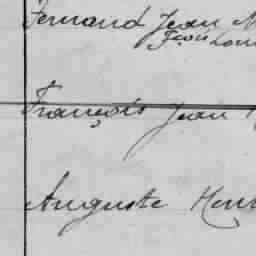 Fernand Jean
Jean Loui
François Jean
Auguste Hen